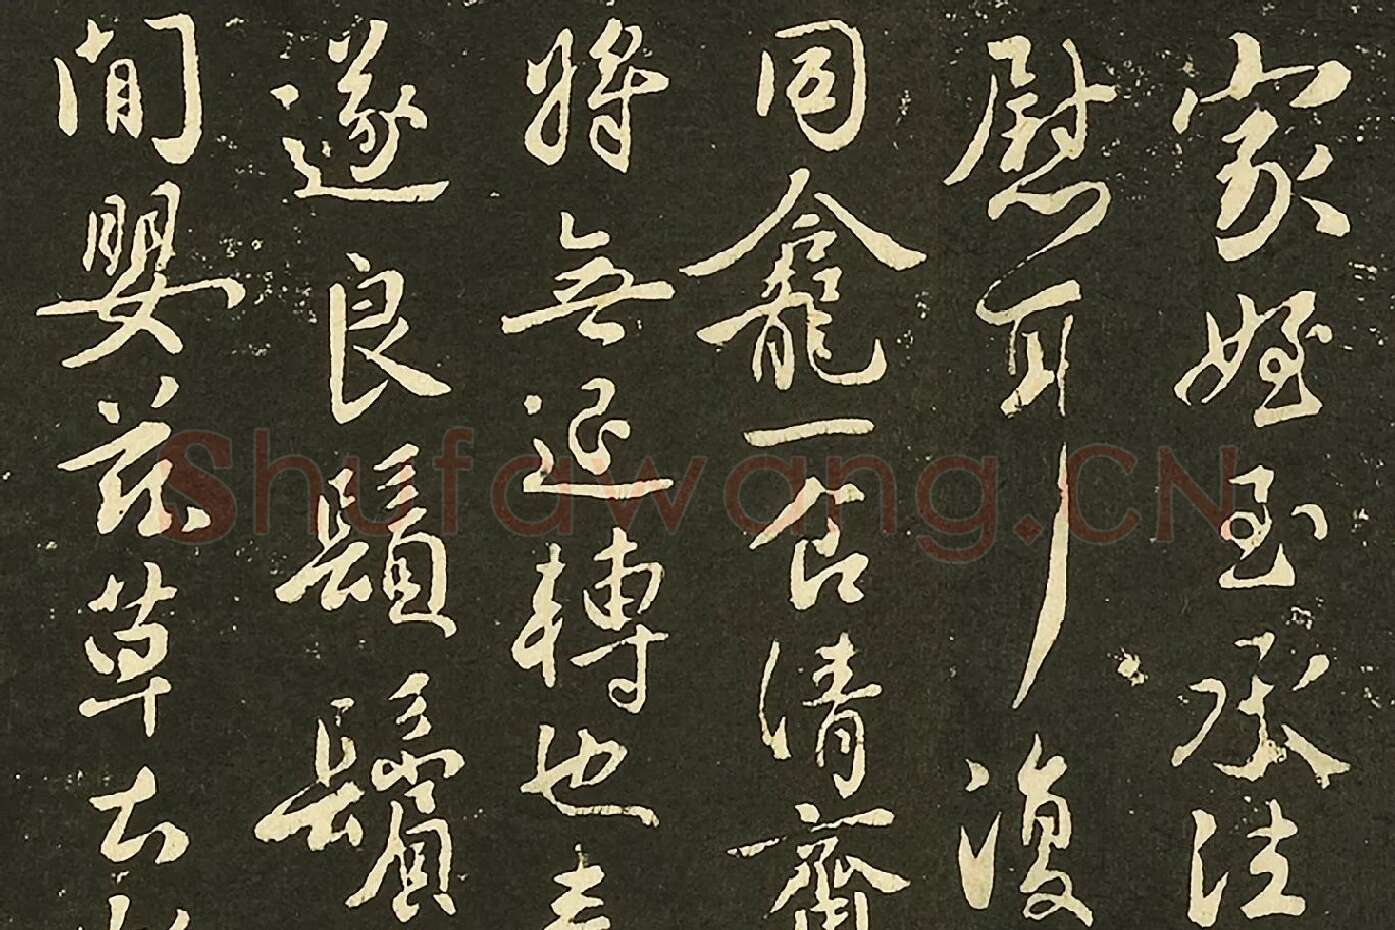 家姪至承法
慰耳復
同龕一食清齋
將無退轉也
遂良鬚鬢
間嬰茲草土
Shufawang.CN